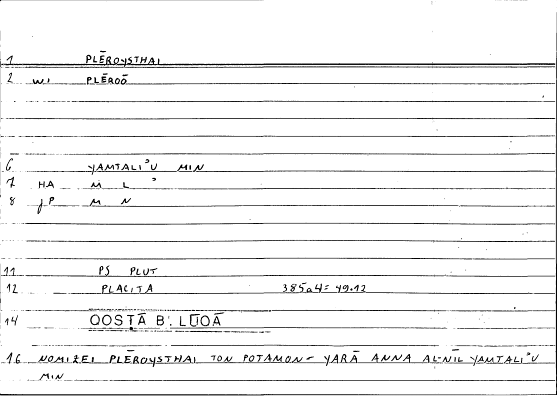 1 PLĒROYSTHAI
2 WI PLĒROŌ
6 YAMTALI'U MIN
7 HA M L '
8 JP M N
11 PS PLUT
12 PLACITA 385a4= 49.12
14 QOSTĀ B. LŪQĀ
16 NOMIZEI PLĒROYSTHAI TON POTAMON- YARĀ ANNA AL-NĪL YAMTALI'U
MIN